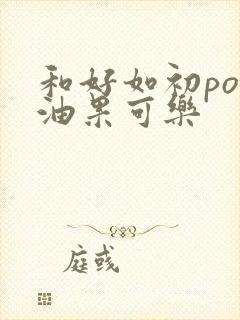 和好如初po
油果可樂
庭彧